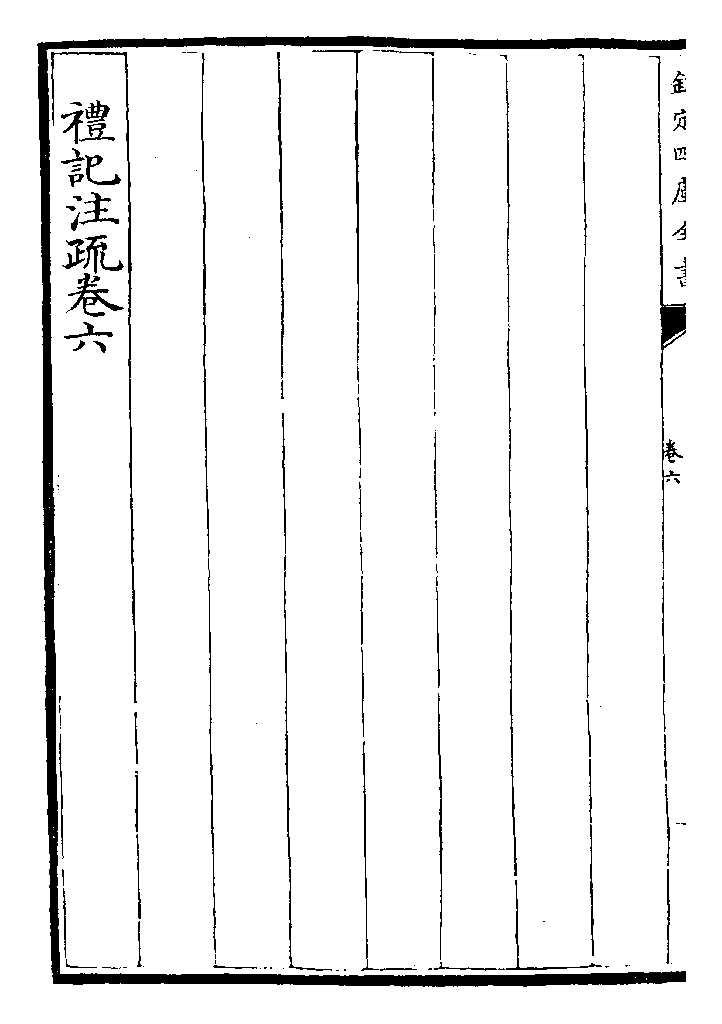 欽定四庫全書
卷六
禮記注疏卷六